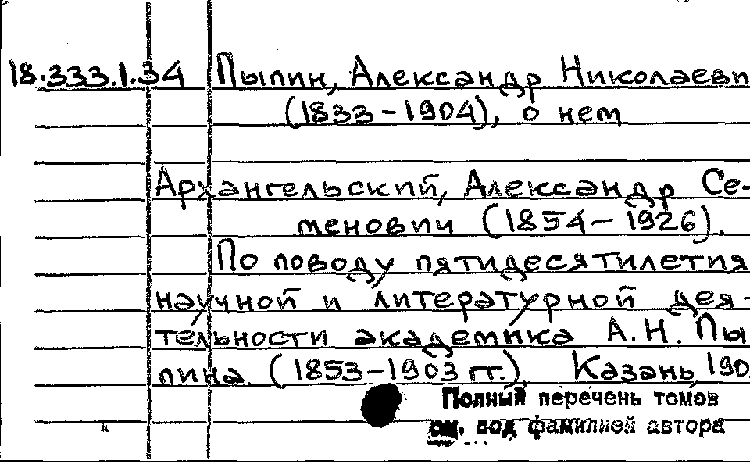 18.333.1.34 Пыпин, Александр Николаеви
(1833-1904), о нем
Архангельский, Александр Се-
менович (1854-1926).
По поводу пятидесятилетия
научной и литературной дея-
тельности академика А.Н. Пы
пина. (1853-1903 гг.). Казань, 190
Полный перечень томов
см. под фамилией автора